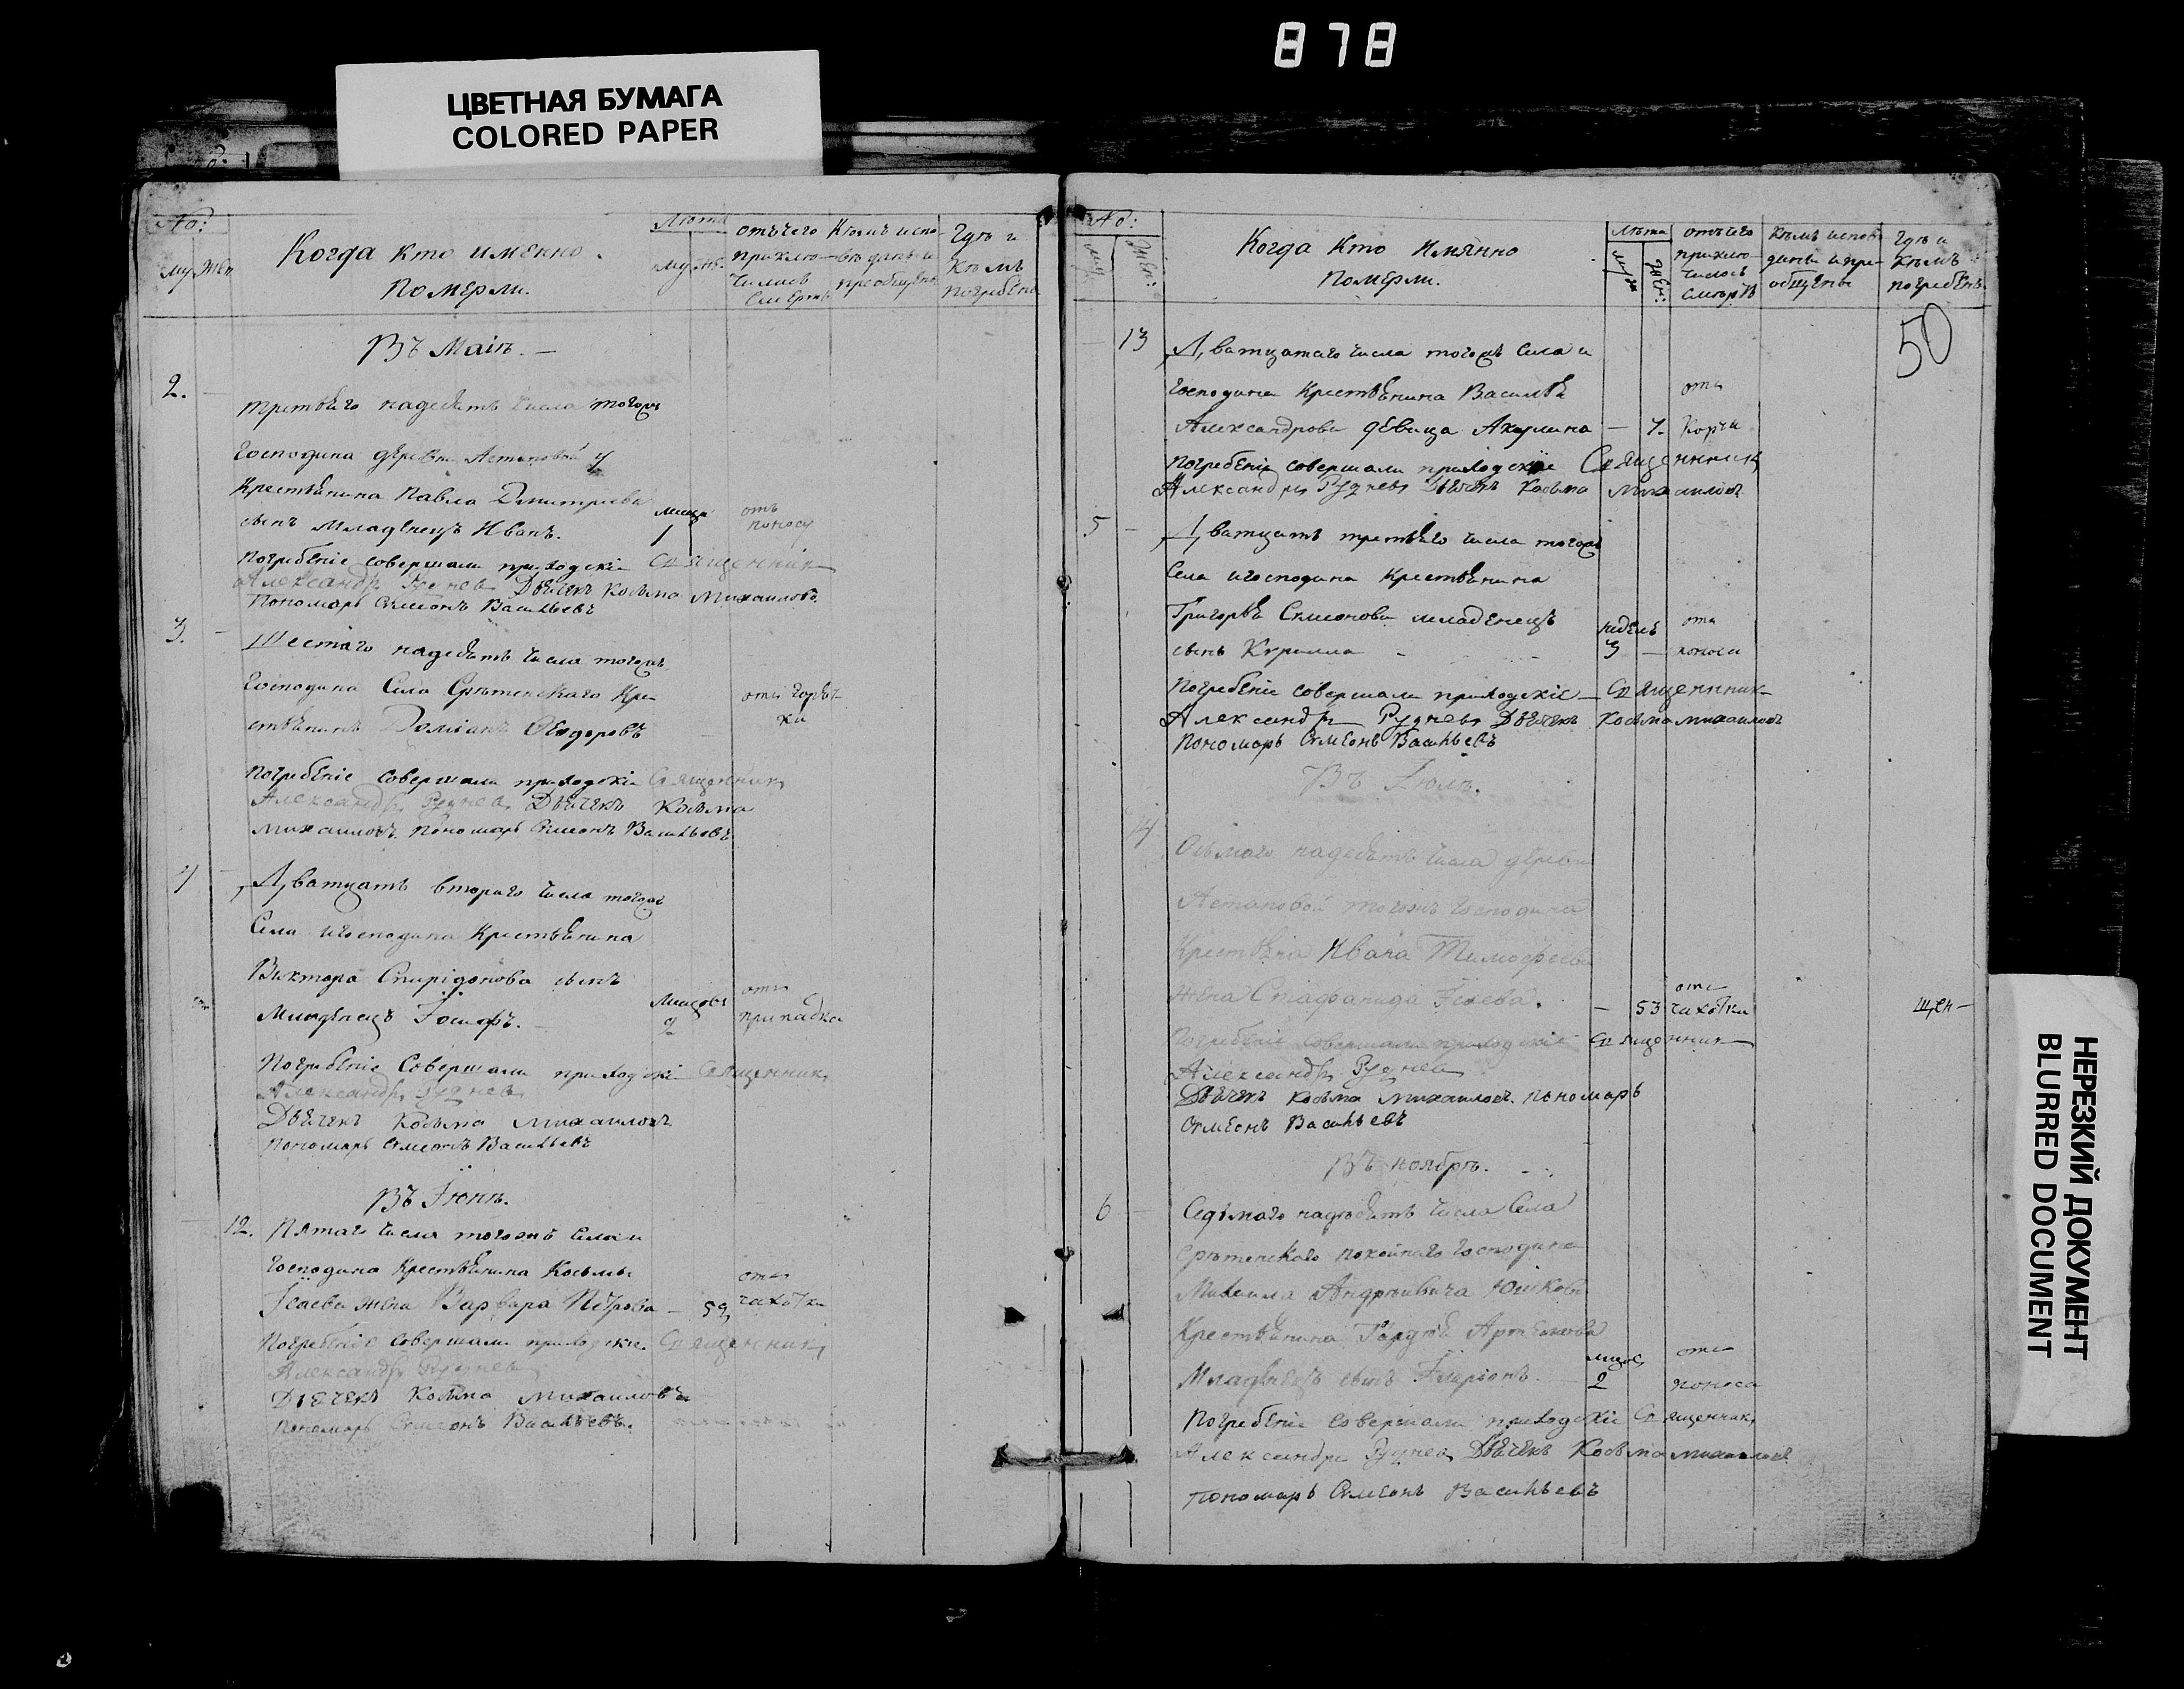 878
ЦВЕТНАЯ БУМАГА
COLORED PAPER
№:
му жен
Когда кто именно
померли.
Лѣта
му же.
отъ чего приклю-чилась смерть
Кѣмъ испо-вѣданы и преобщены
Гдѣ и кѣмъ погребены
Въ Маiѣ.
2.
третьяго надесять числа тогожъ
Господина деревни Астаповой у
Крестьянина Павла Дмитриева
сынъ Младенецъ Иванъ.
1
отъ поносу
Погребенiе совершали приходскiи Священникъ
Александръ Рудневъ Дьячекъ Козьма Михаиловъ
Пономарь Симеонъ Васильевъ
3.
Шестаго надесять числа тогожъ
Господина Села Срѣтенскаго Кре
стьянинъ Домианъ Ѳеодоровъ
отъ горяч
ки
Погребенiе совершали приходскiи Священникъ
Александръ Рудневъ Дьячекъ Козьма
Михаиловъ. Пономарь Симеонъ Васильевъ
4
Дватцать втораго числа тогожъ
Села и господина Крестьянина
Виктора Спиридонова сынъ
Младенецъ Iосифъ.
2
отъ припадка
Погребенiе Совершали приходскi Священникъ
Александръ Рудневъ
Дьячекъ Козьма Михаиловъ
Пономарь Симеонъ Васильевъ
Въ Iюнѣ.
12.
Пятаго числа тогожъ села и
Господина Крестьянина Козьмы
Iсаева жена Варвара Петрова
59
отъ чахотки
Погребенiе совершали приходскiе Священникъ
Александръ Рудневъ
Дьячекъ Козьма Михаиловъ
Пономарь Симеонъ Васильевъ.
№:
муж
жен:
Когда Кто Имянно
Померли.
лѣта
муж
жен:
отъ чего приклю-чилось смерть
Кѣмъ испов-даны и прi-общены
гдѣ и кѣмъ погребенъ
50
13
Дватцатаго числа тогожъ села и
Господина Крестьянина Василья
Александрова девица Акулина
7.
отъ Корчи
Погребенiе совершали приходскiе Священникъ
Александръ Рудневъ Дьячекъ Козьма Михаиловъ
5
Дватцать третьяго числа тогожъ
Села и господина Крестьянина
Григорья Симонова младенецъ
сынъ Кирилла
недель
3
отъ поноса
Погребенiе совершали приходскiе Священникъ
Александръ Рудневъ Дьячекъ Козьма Михаиловъ
Пономарь Симеонъ Васильевъ
Въ Iюлѣ.
14
Осьмаго надесять числа деревни
Астаповой тогожъ Господина
Крестьяна Ивана Тимофеева
Жена Стафанида Iсаева.
53
отъ чахотки
Погребенiе совершали приходскiе Священникъ
Александръ Рудневъ
Дьячекъ Козьма Михаиловъ. Пономарь
Симеонъ Васильевъ
Въ ноябрѣ.
6
Седьмаго надесять числа Села
Срѣтенскаго покойнаго Господина
Михаила Андрѣевича Юшкова
Крестьянина Гордѣя Артемова
Младенецъ сынъ Iларiонъ.
2
отъ поноса
Погребенiе совершали приходскiе Священникъ
Александръ Рудневъ Дьячекъ Козьма Михаиловъ
Пономарь Симеонъ Васильевъ
НЕРЕЗКИЙ ДОКУМЕНТ
BLURRED DOCUMENT